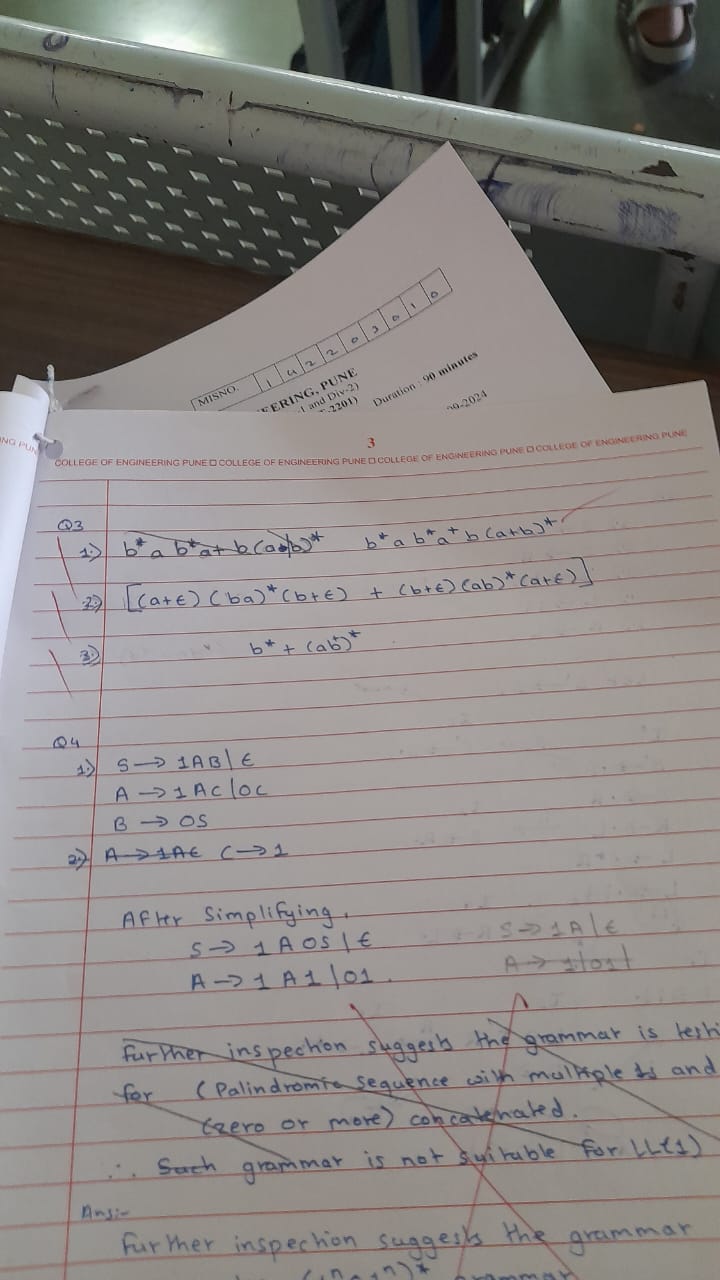 MISNO. 1 4 2 2 0 3 0 1 0
EERING, PUNE
and Div-2)
2201)
Duration : 90 minutes
-2024
3
COLLEGE OF ENGINEERING PUNE □ COLLEGE OF ENGINEERING PUNE □ COLLEGE OF ENGINEERING PUNE □ COLLEGE OF ENGINEERING PUNE
Q3
1) b* a b* a+ b (a+b)* b* a b* a+ b (a+b)*
2) [(a+ε) (ba)* (b+ε) + (b+ε) (ab)* (a+ε)]
3) b* + (ab+)*
Q4
1) S → 1AB | ε
A → 1AC | 0C
B → 0S
2) A → 1Aε C → 1
After Simplifying,
S → 1A0S | ε S → 1A | ε
A → 1A1 | 01. A → 1|01|
Further inspection suggests the grammar is
for (Palindromic sequence with multiple 1s and
(zero or more) concatenated.
∴ Such grammar is not suitable for LL(1)
Ans:-
Further inspection suggests the grammar